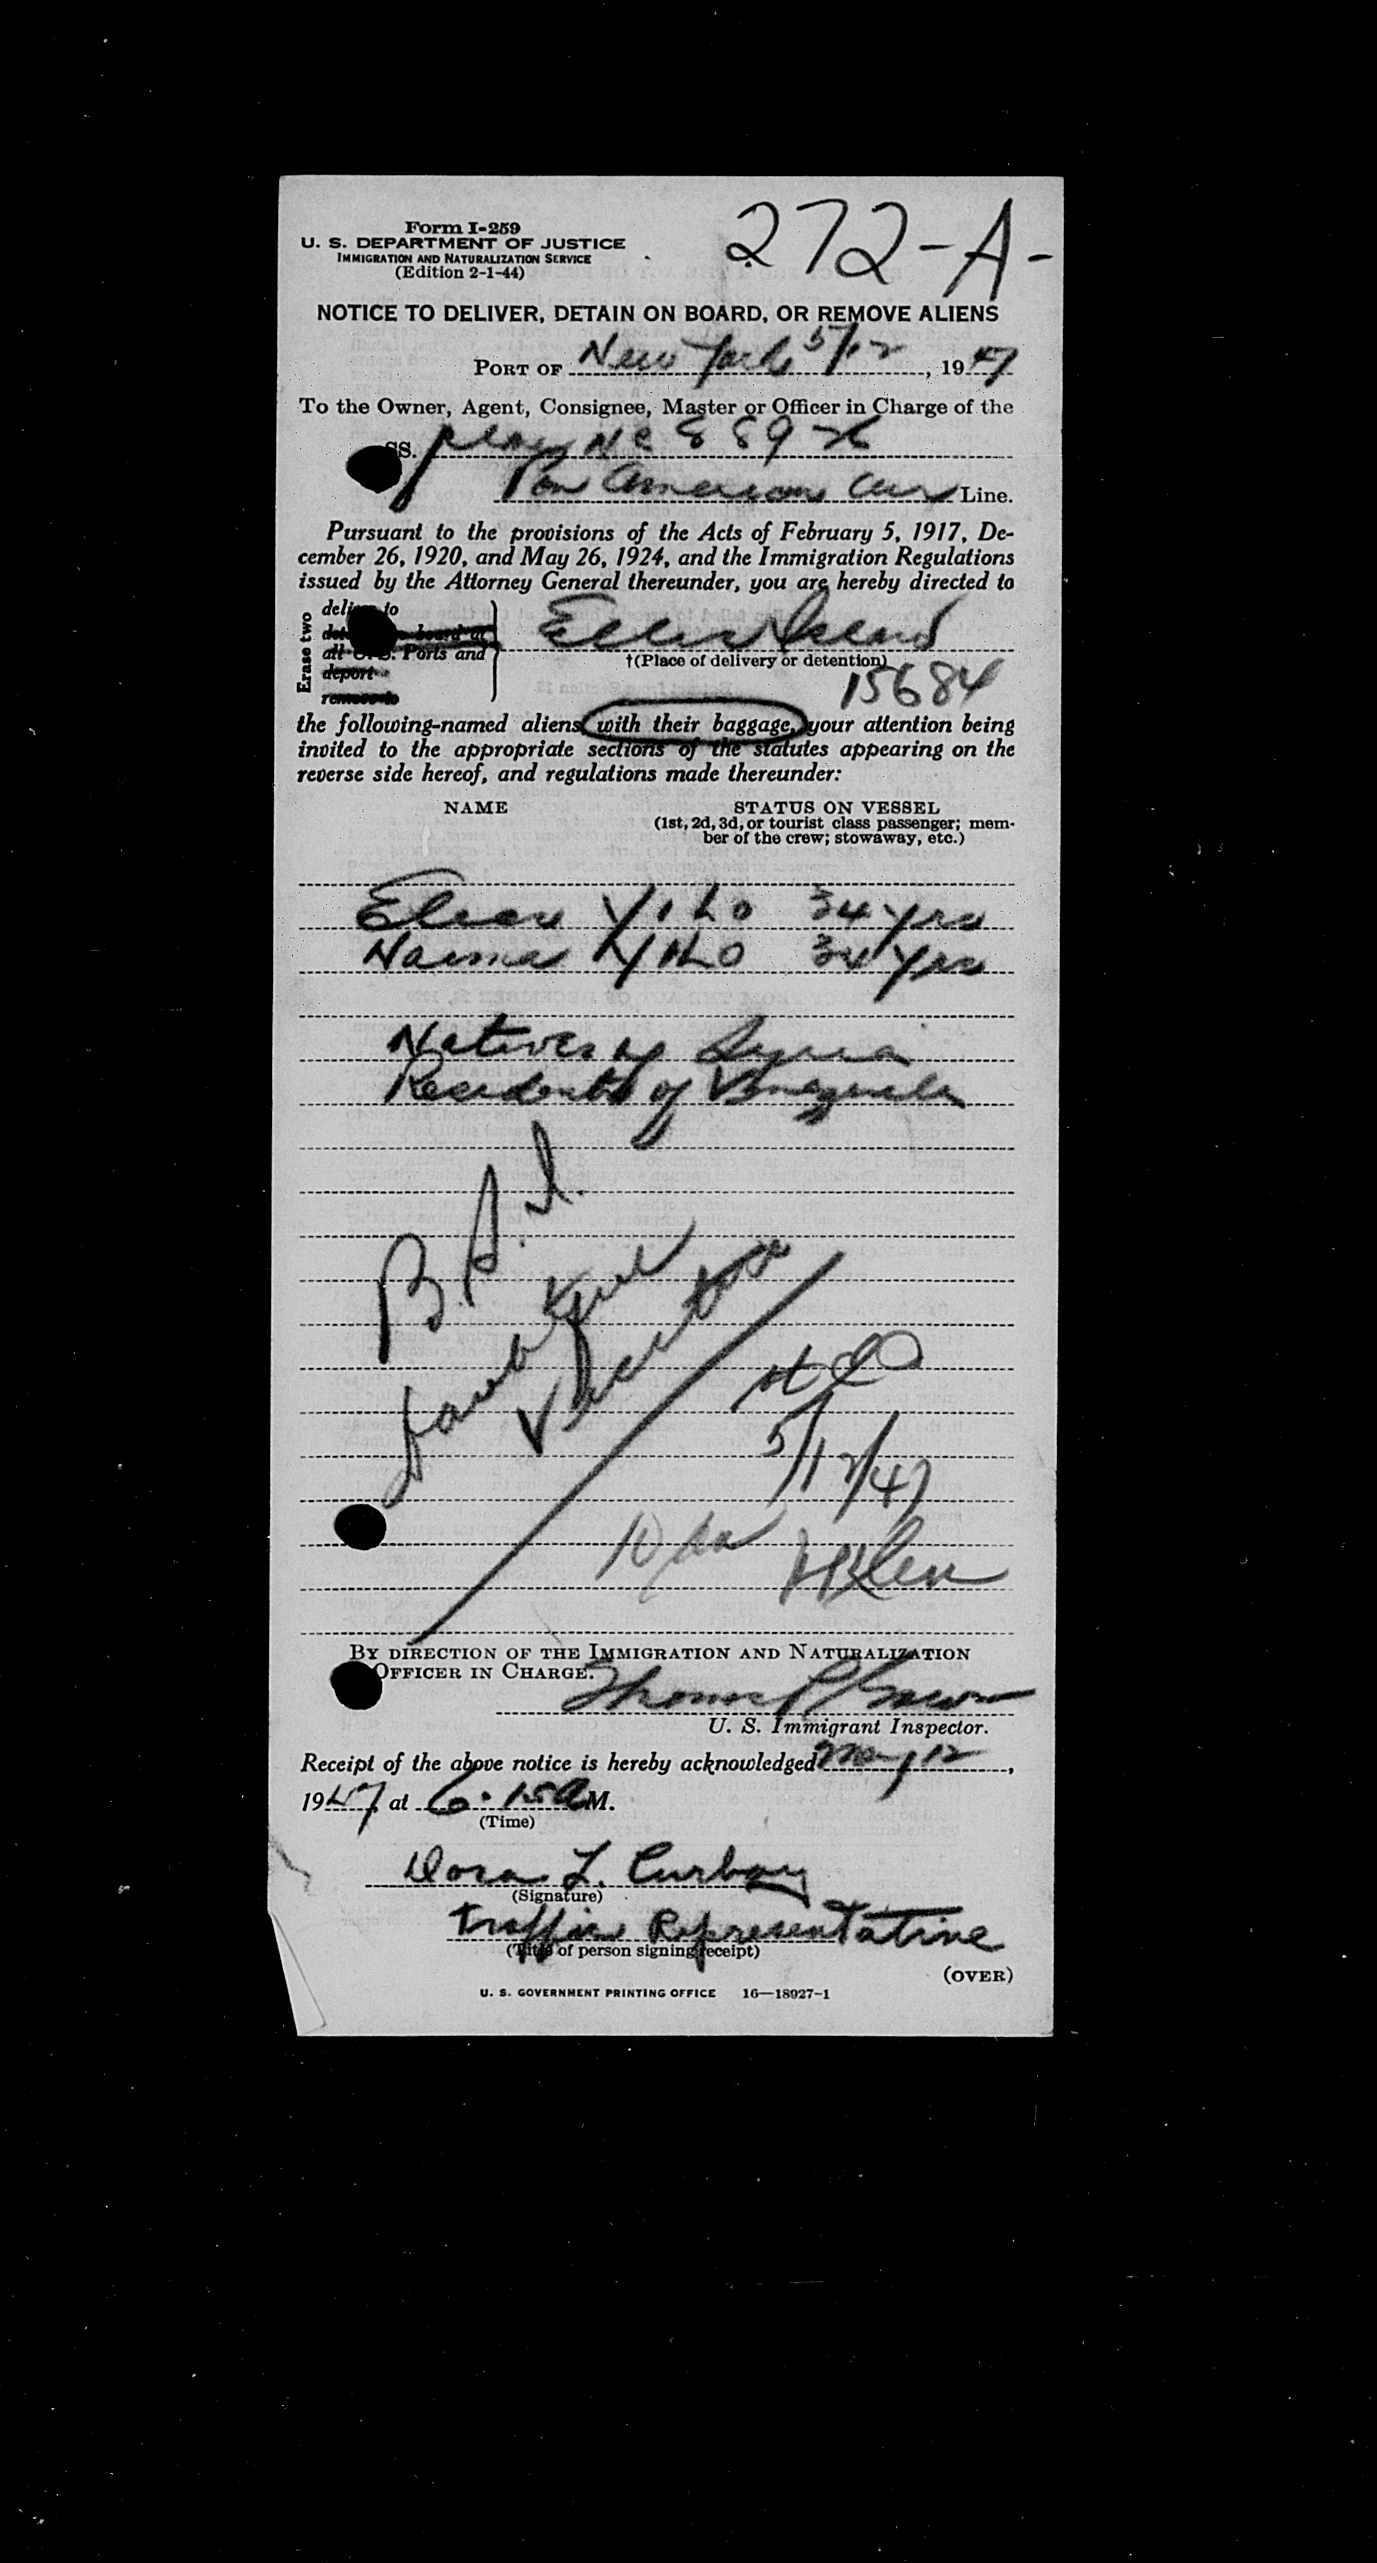 Form I-259
U. S. DEPARTMENT OF JUSTICE
IMMIGRATION AND NATURALIZATION SERVICE
(Edition 2-1-44)
272-A-
NOTICE TO DELIVER, DETAIN ON BOARD, OR REMOVE ALIENS
PORT OF New York 5/12, 1947
To the Owner, Agent, Consignee, Master or Officer in Charge of the
SS. plane NC 88926
Pan American Air Line.
Pursuant to the provisions of the Acts of February 5, 1917, De-
cember 26, 1920, and May 26, 1924, and the Immigration Regulations
issued by the Attorney General thereunder, you are hereby directed to
Erase two
deliver to
board at
all U.S. Ports and
deport
remove to
Ellis Island
†(Place of delivery or detention)
15684
the following-named aliens with their baggage, your attention being
invited to the appropriate sections of the statutes appearing on the
reverse side hereof, and regulations made thereunder:
NAME STATUS ON VESSEL
(1st, 2d, 3d, or tourist class passenger; mem-
ber of the crew; stowaway, etc.)
Elias 34 yrs
Naima 34 yrs
Natives of Syria
Residents of Venezuela
B. S. I.
5/12/47
BY DIRECTION OF THE IMMIGRATION AND NATURALIZATION
OFFICER IN CHARGE.
Thomas P
U. S. Immigrant Inspector.
Receipt of the above notice is hereby acknowledged May 12,
1947 at 6:15 A M.
(Time)
Dora L. Curboy
(Signature)
Traffic Representative
(Title of person signing receipt)
(OVER)
U. S. GOVERNMENT PRINTING OFFICE 16—18927-1